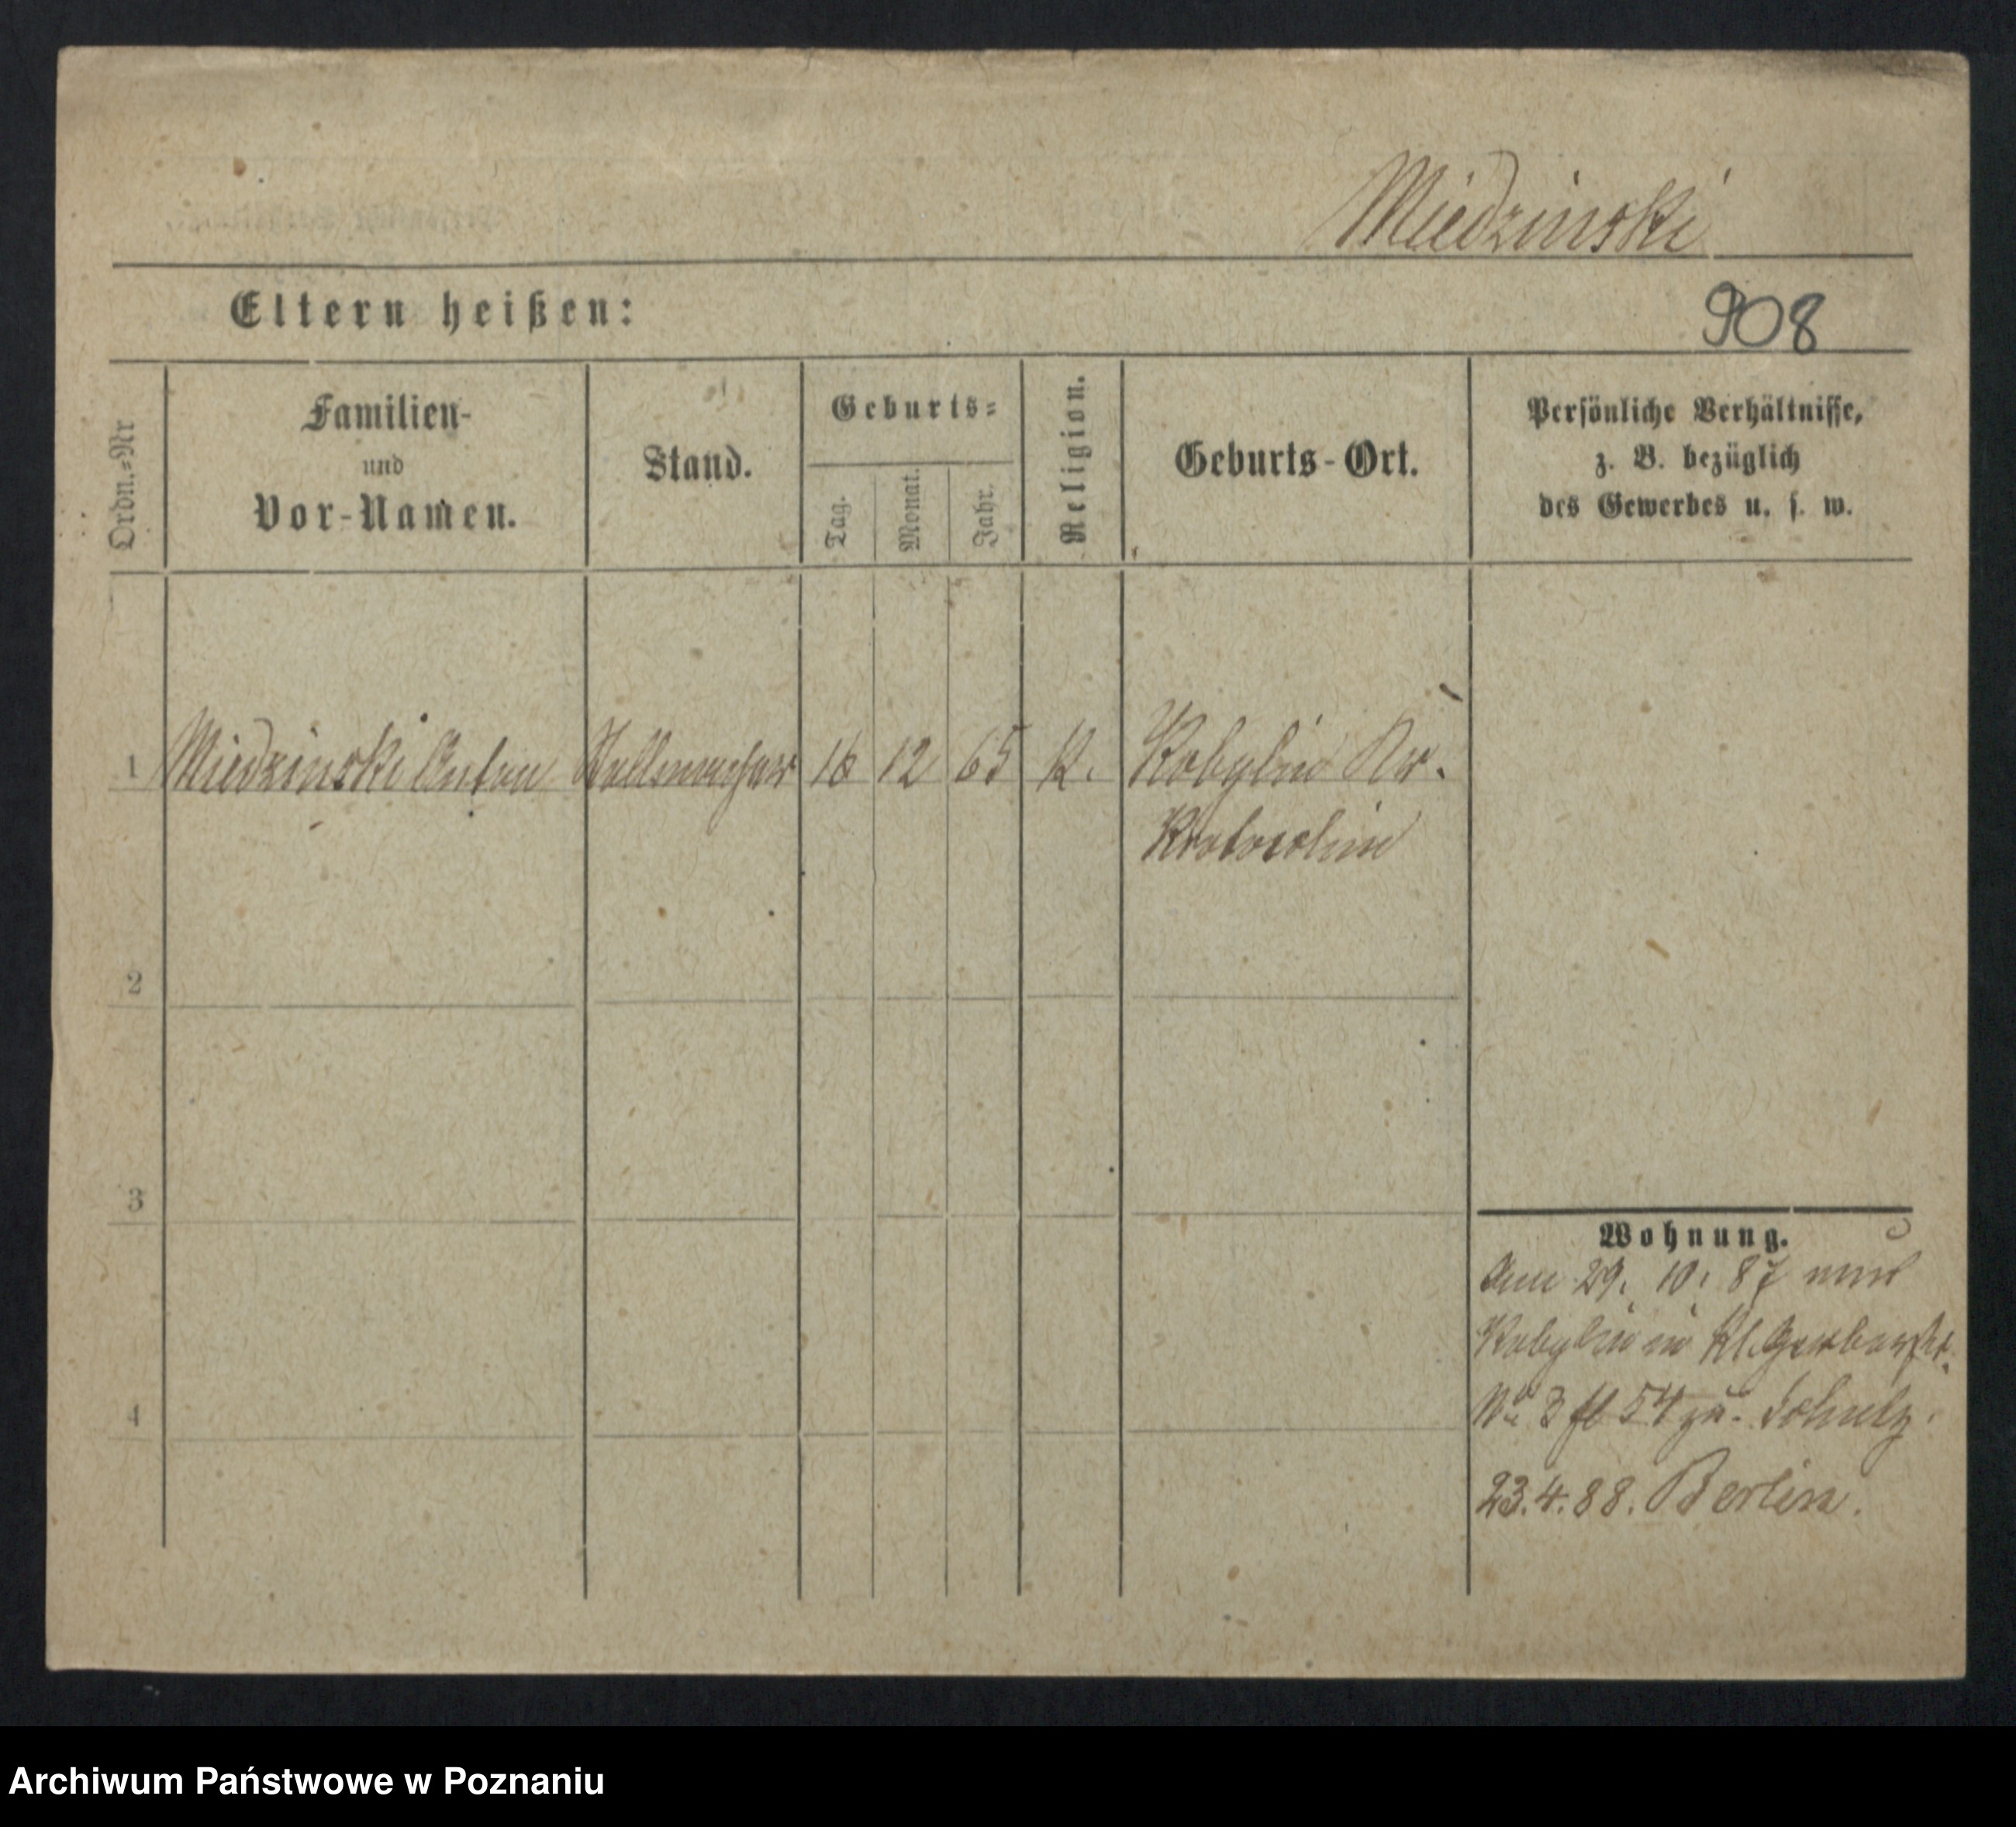 Miedzinski
Eltern heißen:
908
Ordn.=Nr
Familien-
und
Vor-Namen.
Stand.
Geburts=
Tag.
Monat.
Jahr.
Religion.
Geburts-Ort.
Persönliche Verhältnisse,
z. B. bezüglich
des Gewerbes u. s. w.
1 Miedzinski Anton Stellmacher 16 12 65 K. Kobylin Kr.
Krotoschin
2
3
4
Wohnung.
29. 10. 87
Kobylin in Kl. Gerberstr.
No 3
23.4.88. Berlin.
Archiwum Państwowe w Poznaniu